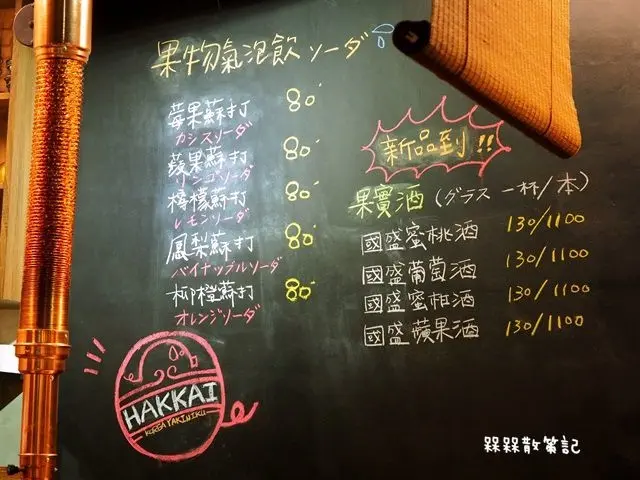 果物氣泡飲ソーダ
莓果蘇打 80
カシスソーダ
蘋果蘇打 80
リンゴソーダ
檸檬蘇打 80
レモンソーダ
鳳梨蘇打 80
パイナップルソーダ
柳橙蘇打 80
オレンジソーダ
新品到!!
果實酒 (グラス 一杯/本)
國盛蜜桃酒 130/1100
國盛葡萄酒 130/1100
國盛蜜柑酒 130/1100
國盛蘋果酒 130/1100
HAKKAI
KOREA YAKINIKU
槑槑散策記